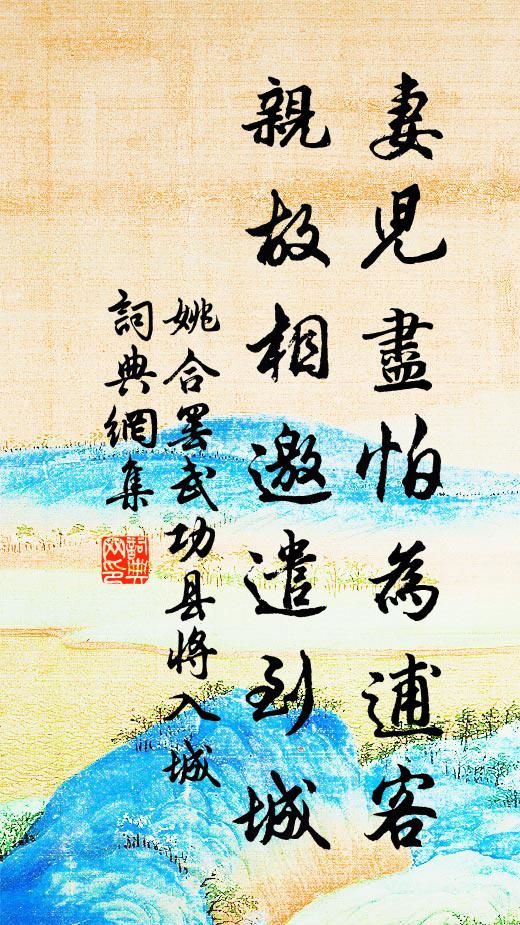 妻兒盡怕為逋客
親故相邀遣到城
姚合罢武功县將入城
詞典網集